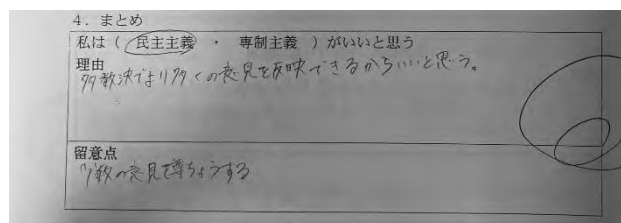 4. まとめ
私は( 民主主義 ・ 専制主義 )がいいと思う
理由
多数決でより多くの意見を反映できるからいいと思う。
留意点
少数の意見を尊ちょうする